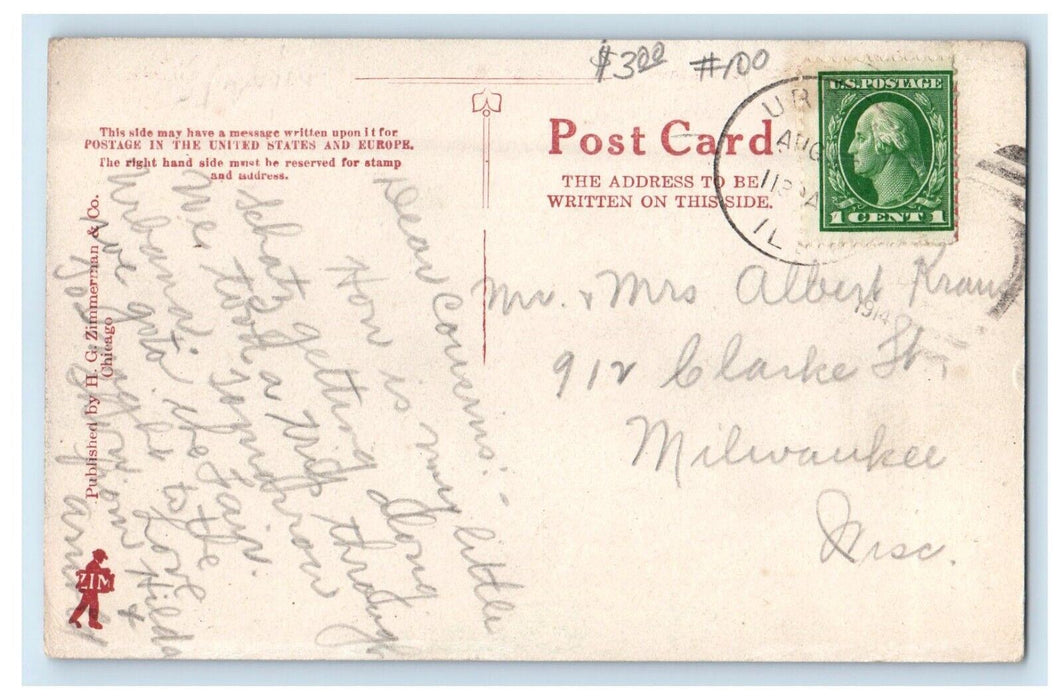 $3.00 #100
This side may have a message written upon it for
POSTAGE IN THE UNITED STATES AND EUROPE.
The right hand side must be reserved for stamp
and address.
Post Card
THE ADDRESS TO BE
WRITTEN ON THIS SIDE.
U.S. POSTAGE
1 CENT 1
UR
AUG
1130A
IL
1914
Mr. & Mrs Albert Kraus
912 Clarke St.
Milwaukee
Wisc.
Dear Cousins: -
How is my little
schatz getting along
We took a trip through
Urbana. tomorrow
we go to the Fair.
Love
Hilda
&
Published by H. G. Zimmerman & Co.
Chicago
ZIM